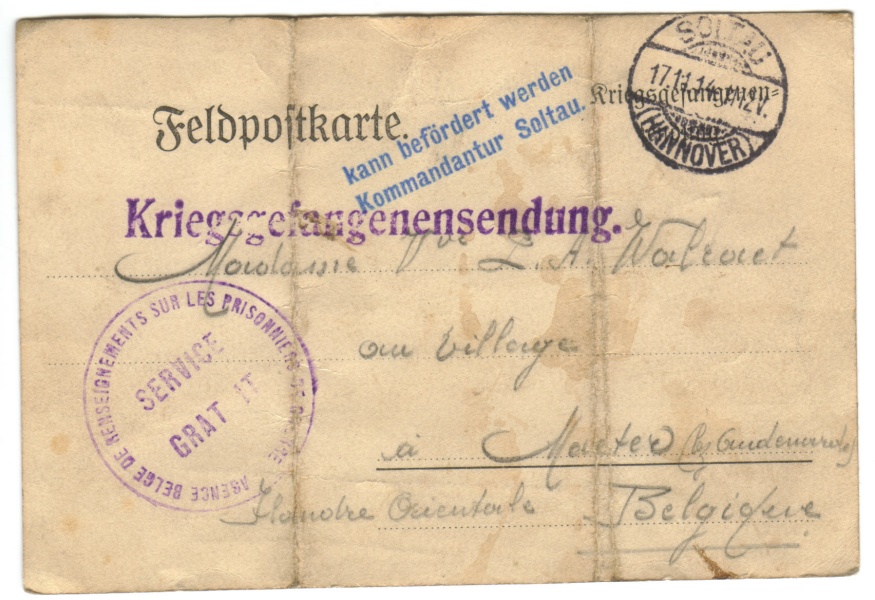 SOLTAU
17.11.14.
(HANNOVER)
Kriegsgefangenen=
Feldpostkarte.
kann befördert werden
Kommandantur Soltau.
Kriegsgefangenensendung.
Madame Vve L. A.
au village
à Mater (lez Audenarde)
Flandre Orientale Belgique
AGENCE BELGE DE RENSEIGNEMENTS SUR LES PRISONNIERS DE GUERRE
SERVICE
GRAT IT